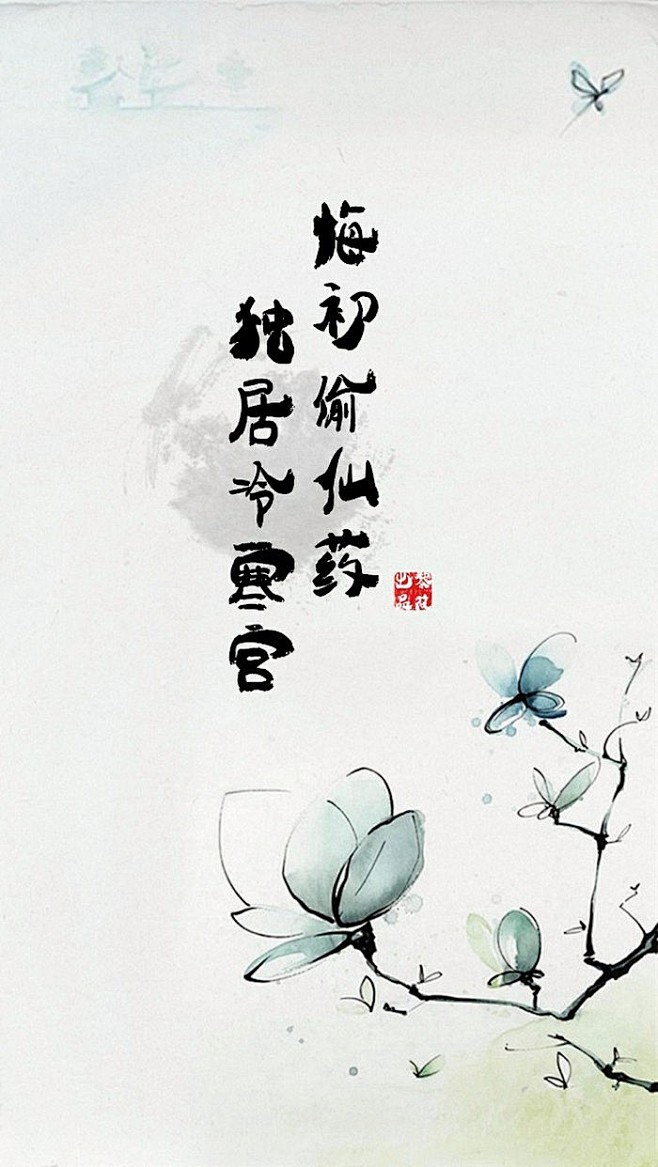 悔初偷仙药
独居冷寒宫